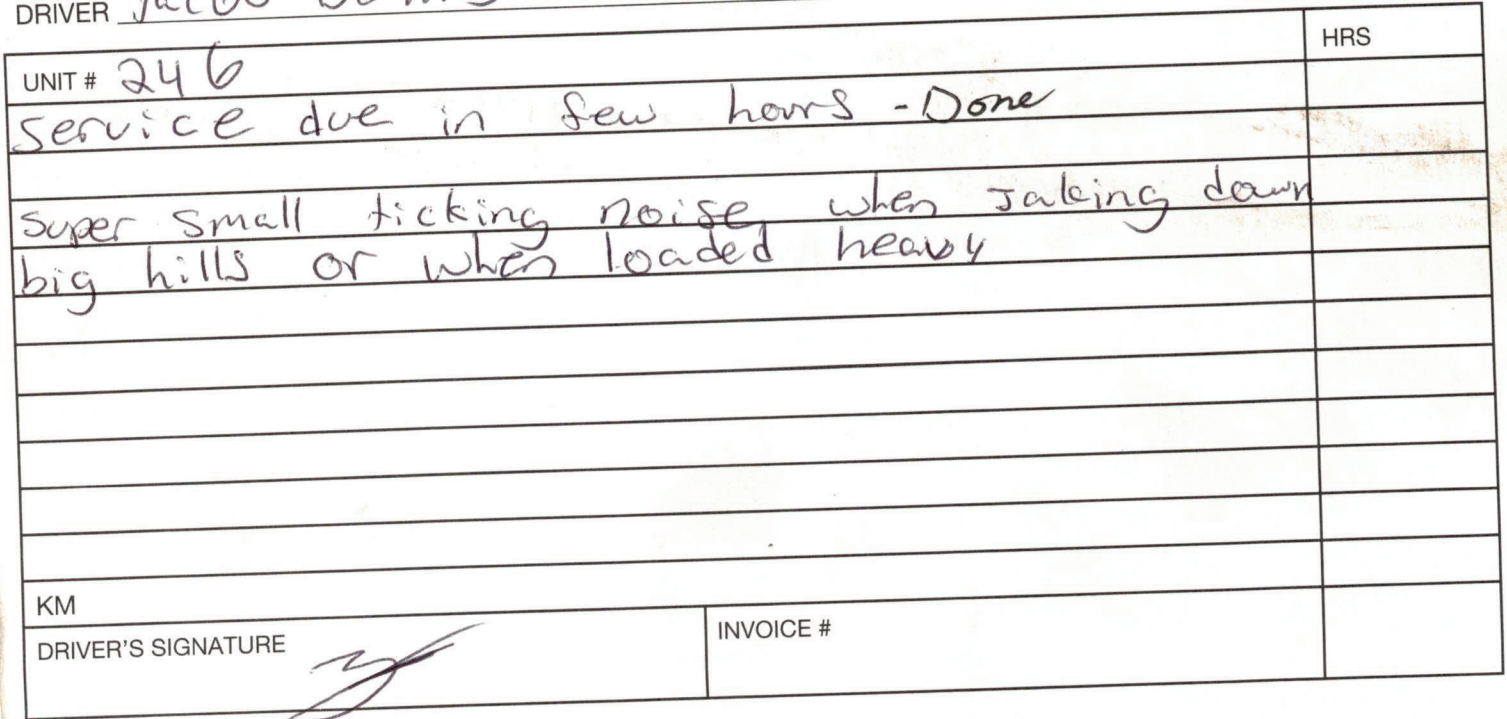 DRIVER Jacob
UNIT # 246
HRS
service due in few hours - Done
super small ticking noise when Jaking down
big hills or when loaded heavy
KM
DRIVER'S SIGNATURE
INVOICE #